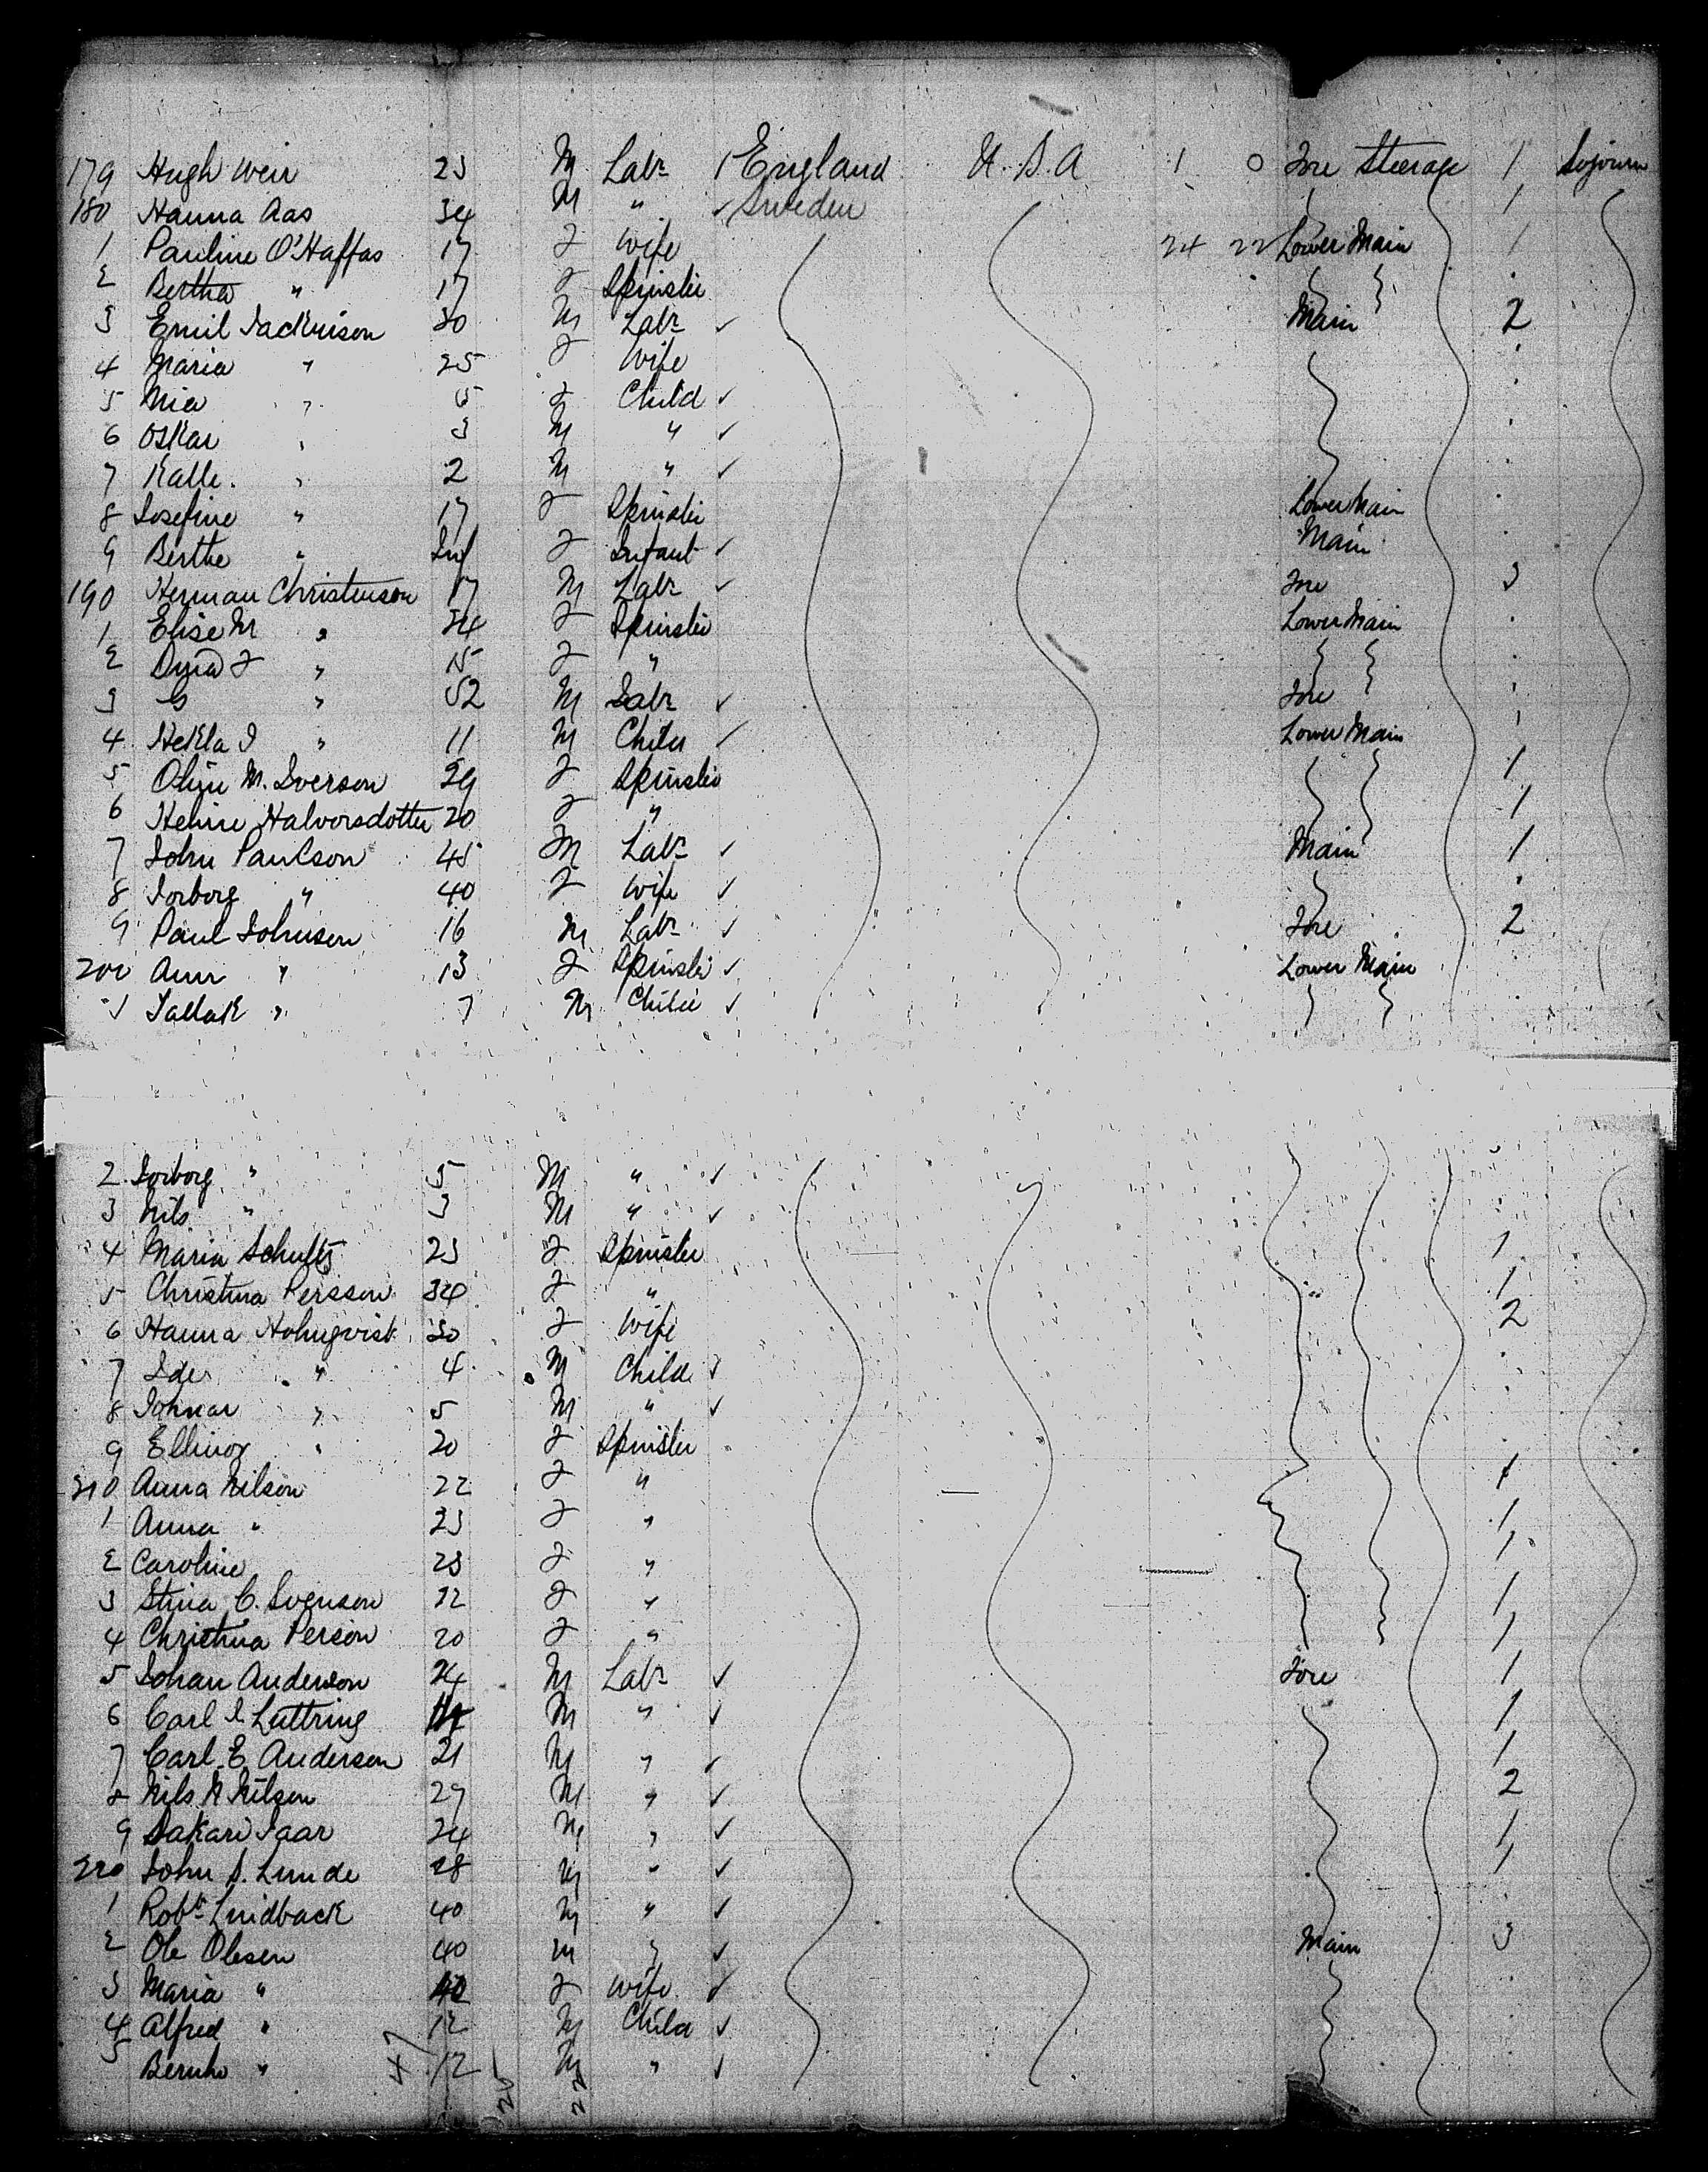 179 Hugh Weir 23 M Labr England U.S.A 1 0 Fore Steerage 1 Sojourn
180 Hanna Aas 34 M " Sweden 1
1 Pauline O'Haffas 17 F Wife 24 22 Lower Main 1
2 Bertha " 17 F Spinster
3 Emil Jackrison 30 M Labr Main 2
4 Maria " 25 F Wife
5 Mia " 5 F Child
6 Oskar " 3 M "
7 Kalle " 2 M "
8 Josefine " 17 F Spinster Lower Main
9 Berthe " Inf F Infant Main
190 Herman Christenson 17 M Labr Fore 3
1 Elise M " 24 F Spinster Lower Main
2 F " 15 F "
3 G " 52 M Labr Fore
4 Hekla J " 11 M Child Lower Main
5 M. Iverson 29 F Spinster 1
6 Halvorsdotter 20 F " 1
7 John Paulson 45 M Labr Main 1
8 Torborg " 40 F Wife
9 Paul Johnson 16 M Labr Fore 2
200 Ann " 13 F Spinster Lower Main
1 Tallak " 7 M Child
2 Torborg " 5 M "
3 Nils " 3 M "
4 Maria Schultz 23 F Spinster 1
5 Christina Persson 34 F " 1
6 Hanna Holmqvist 30 F Wife 2
7 Ide " 4 M Child
8 " 5 M "
9 Ellinor " 20 F Spinster
210 Anna Nilson 22 F " 1
1 Anna " 23 F " 1
2 Caroline 23 F " 1
3 Stina C. Svenson 22 F " 1
4 Christina Person 20 F " 1
5 Johan Anderson 24 M Labr Fore 1
6 Carl J Luttring M " 1
7 Carl E Anderson 21 M " 1
8 Nils N Nilson 27 M " 2
9 Sakari Jaar 24 M " 1
220 John S. Lunde 28 M " 1
1 Robt Lindback 40 M "
2 Ole Olesen 40 M " Main 3
3 Maria " 40 F Wife
4 Alfred " 12 M Child
5 " 12 M "
47 25 22